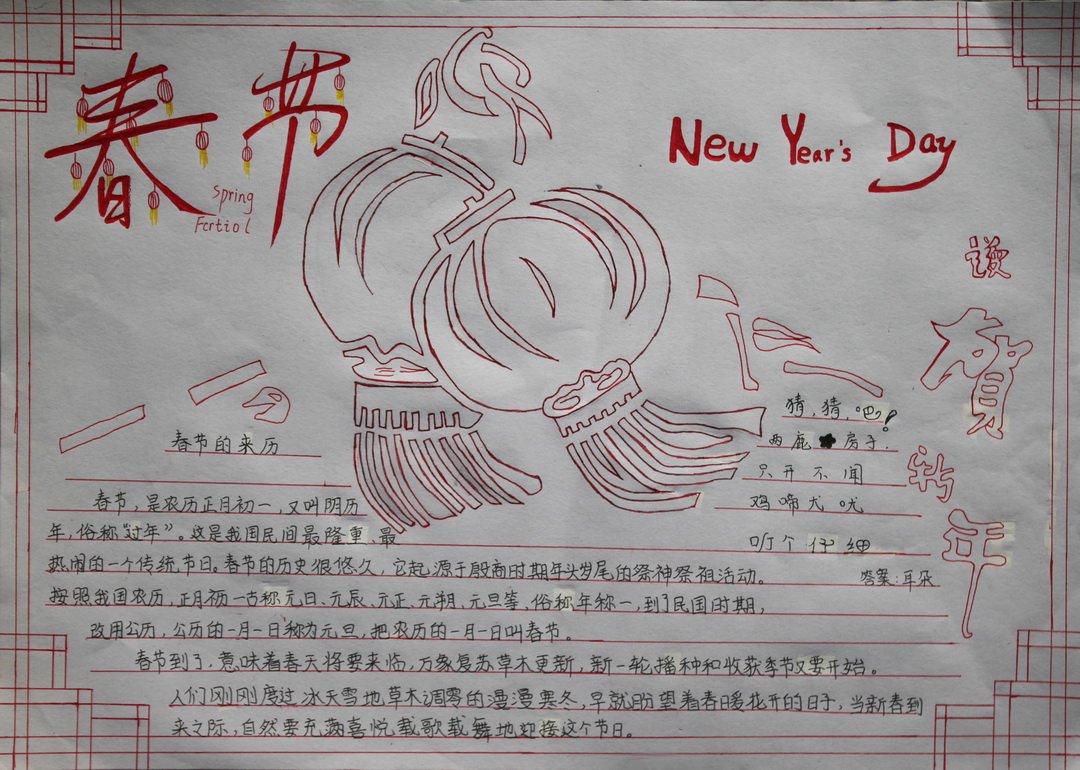 春节
Spring
Fcrtiol
New Year's Day
谨
贺
新
年
猜,猜,吧!
两鹿房子.
只开不闻
鸡啼犬吠
听个仔细
答案:耳朵
春节的来历
春节,是农历正月初一,又叫阴历
年,俗称“过年”。这是我国民间最隆重、最
热闹的一个传统节日。春节的历史很悠久,它起源于殷商时期年头岁尾的祭神祭祖活动。
按照我国农历,正月初一古称元日、元辰、元正、元朔、元旦等、俗称年称一,到了民国时期,
改用公历,公历的一月一日称为元旦,把农历的一月一日叫春节。
春节到了,意味着春天将要来临,万象复苏草木更新,新一轮播种和收获季节又要开始。
人们刚刚度过冰天雪地草木凋零的漫漫寒冬,早就盼望着春日暖花开的日子,当新春到
来之际,自然要充满喜悦载歌载舞地迎接这个节日。